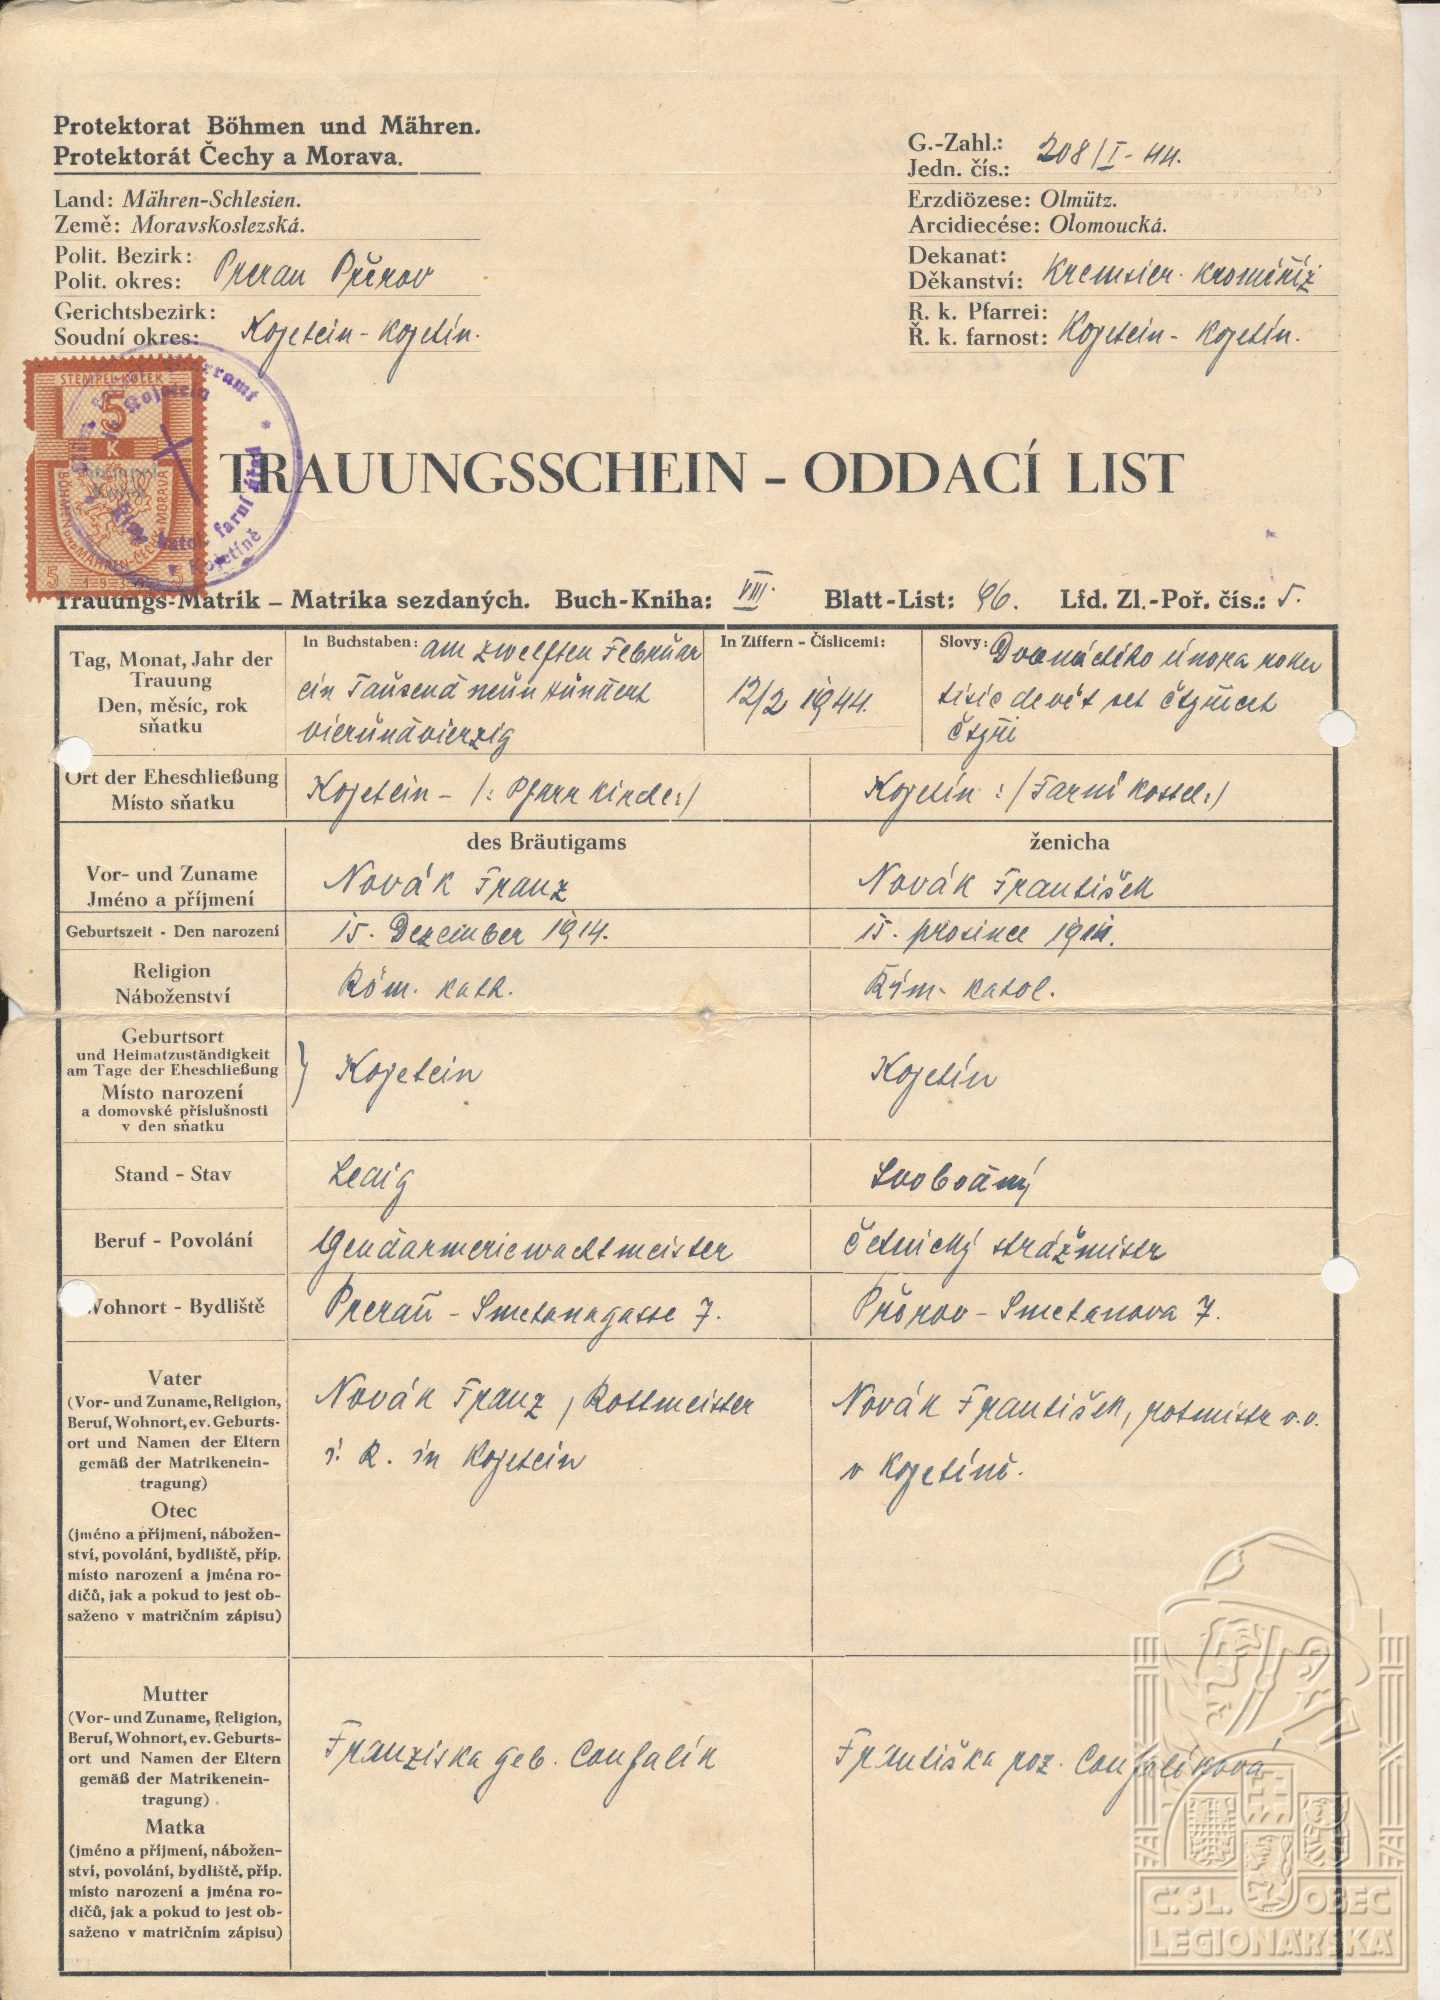 Protektorat Böhmen und Mähren.
Protektorát Čechy a Morava.
Land: Mähren-Schlesien.
Země: Moravskoslezská.
Polit. Bezirk:
Polit. okres: Prerau Přerov
Gerichtsbezirk:
Soudní okres: Kojetein - Kojetín.
G.-Zahl.:
Jedn. čís.: 208/I-44.
Erzdiözese: Olmütz.
Arcidiecése: Olomoucká.
Dekanat:
Děkanství: Kremsier - Kroměříž
R. k. Pfarrei:
Ř. k. farnost: Kojetein - Kojetín.
STEMPEL-KOLEK
5
K
BÖHMEN UND MÄHREN-ČECHY A MORAVA
5 5
farní úřad
Kojetíně
TRAUUNGSSCHEIN - ODDACÍ LIST
Trauungs-Matrik – Matrika sezdaných. Buch-Kniha: VIII. Blatt-List: 96. Lfd. Zl.-Poř. čís.: 5.
Tag, Monat, Jahr der
Trauung
Den, měsíc, rok
sňatku
In Buchstaben: am zwelften Februar
ein Tausend neun hundert
vierundvierzig
In Ziffern - Číslicemi:
12/2 1944.
Slovy: Dvanáctého února roku
tisíc devět set čtyřicet
čtyři
Ort der Eheschließung
Místo sňatku
Kojetein - /: Pfarrkirche:/
Kojetín :/Farní kostel:/
des Bräutigams
ženicha
Vor- und Zuname
Jméno a příjmení
Novák Franz
Novák František
Geburtszeit - Den narození
15. Dezember 1914.
15. prosince 1914.
Religion
Náboženství
Röm. kath.
Řím. katol.
Geburtsort
und Heimatzuständigkeit
am Tage der Eheschließung
Místo narození
a domovské příslušnosti
v den sňatku
Kojetein
Kojetín
Stand - Stav
Ledig
Svobodný
Beruf - Povolání
Gendarmeriewachtmeister
četnický strážmistr
Wohnort - Bydliště
Prerau - Smetanagasse 7.
Přerov - Smetanova 7.
Vater
(Vor- und Zuname, Religion,
Beruf, Wohnort, ev. Geburts-
ort und Namen der Eltern
gemäß der Matrikenein-
tragung)
Otec
(jméno a příjmení, nábožen-
ství, povolání, bydliště, příp.
místo narození a jména ro-
dičů, jak a pokud to jest ob-
saženo v matričním zápisu)
Novák Franz, Rottmeister
i. R. in Kojetein
Novák František, rotmistr v.v.
v Kojetíně.
Mutter
(Vor- und Zuname, Religion,
Beruf, Wohnort, ev. Geburts-
ort und Namen der Eltern
gemäß der Matrikenein-
tragung)
Matka
(jméno a příjmení, nábožen-
ství, povolání, bydliště, příp.
místo narození a jména ro-
dičů, jak a pokud to jest ob-
saženo v matričním zápisu)
Franziska geb. Coufalik
Františka roz. Coufalíková
Č. SL. OBEC
LEGIONÁŘSKÁ